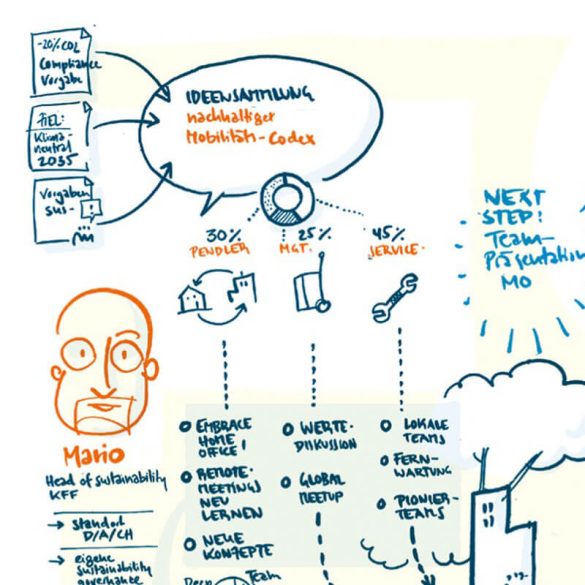 -20% CO2
Compliance
Vorgabe
ZIEL:
Klima-
neutral
2035
Vorgaben
sus-
!
IDEENSAMMLUNG
nachhaltiger
Mobilitäts-Codex
30%
PENDLER
25%
MGT.
45%
SERVICE.
NEXT
STEP:
Team-
Präsentation
MO
Mario
Head of sustainability
KFF
→ standort
D/A/CH
→ eigene
sustainability
governance
EMBRACE
HOME
OFFICE!
REMOTE-
MEETINGS
NEU
LERNEN
NEUE
KONZEPTE
WERTE-
DISKUSSION
GLOBAL
MEETUP
LOKALE
TEAMS
FERN-
WARTUNG
PIONIER-
TEAMS
Team